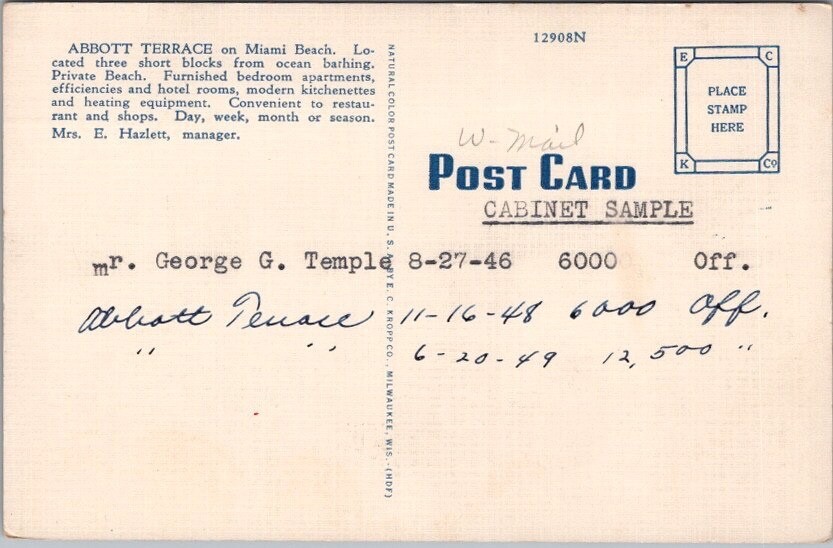 ABBOTT TERRACE on Miami Beach. Lo-
cated three short blocks from ocean bathing.
Private Beach. Furnished bedroom apartments,
efficiencies and hotel rooms, modern kitchenettes
and heating equipment. Convenient to restau-
rant and shops. Day, week, month or season.
Mrs. E. Hazlett, manager.
NATURAL COLOR POST CARD MADE IN U. S. A. BY E. C. KROPP CO., MILWAUKEE, WIS.-(HDF)
12908N
E C
PLACE
STAMP
HERE
K Co
W-Mail
POST CARD
CABINET SAMPLE
mr. George G. Temple 8-27-46 6000 Off.
Abbott Terrace 11-16-48 6000 Off.
" " 6-20-49 12,500 "